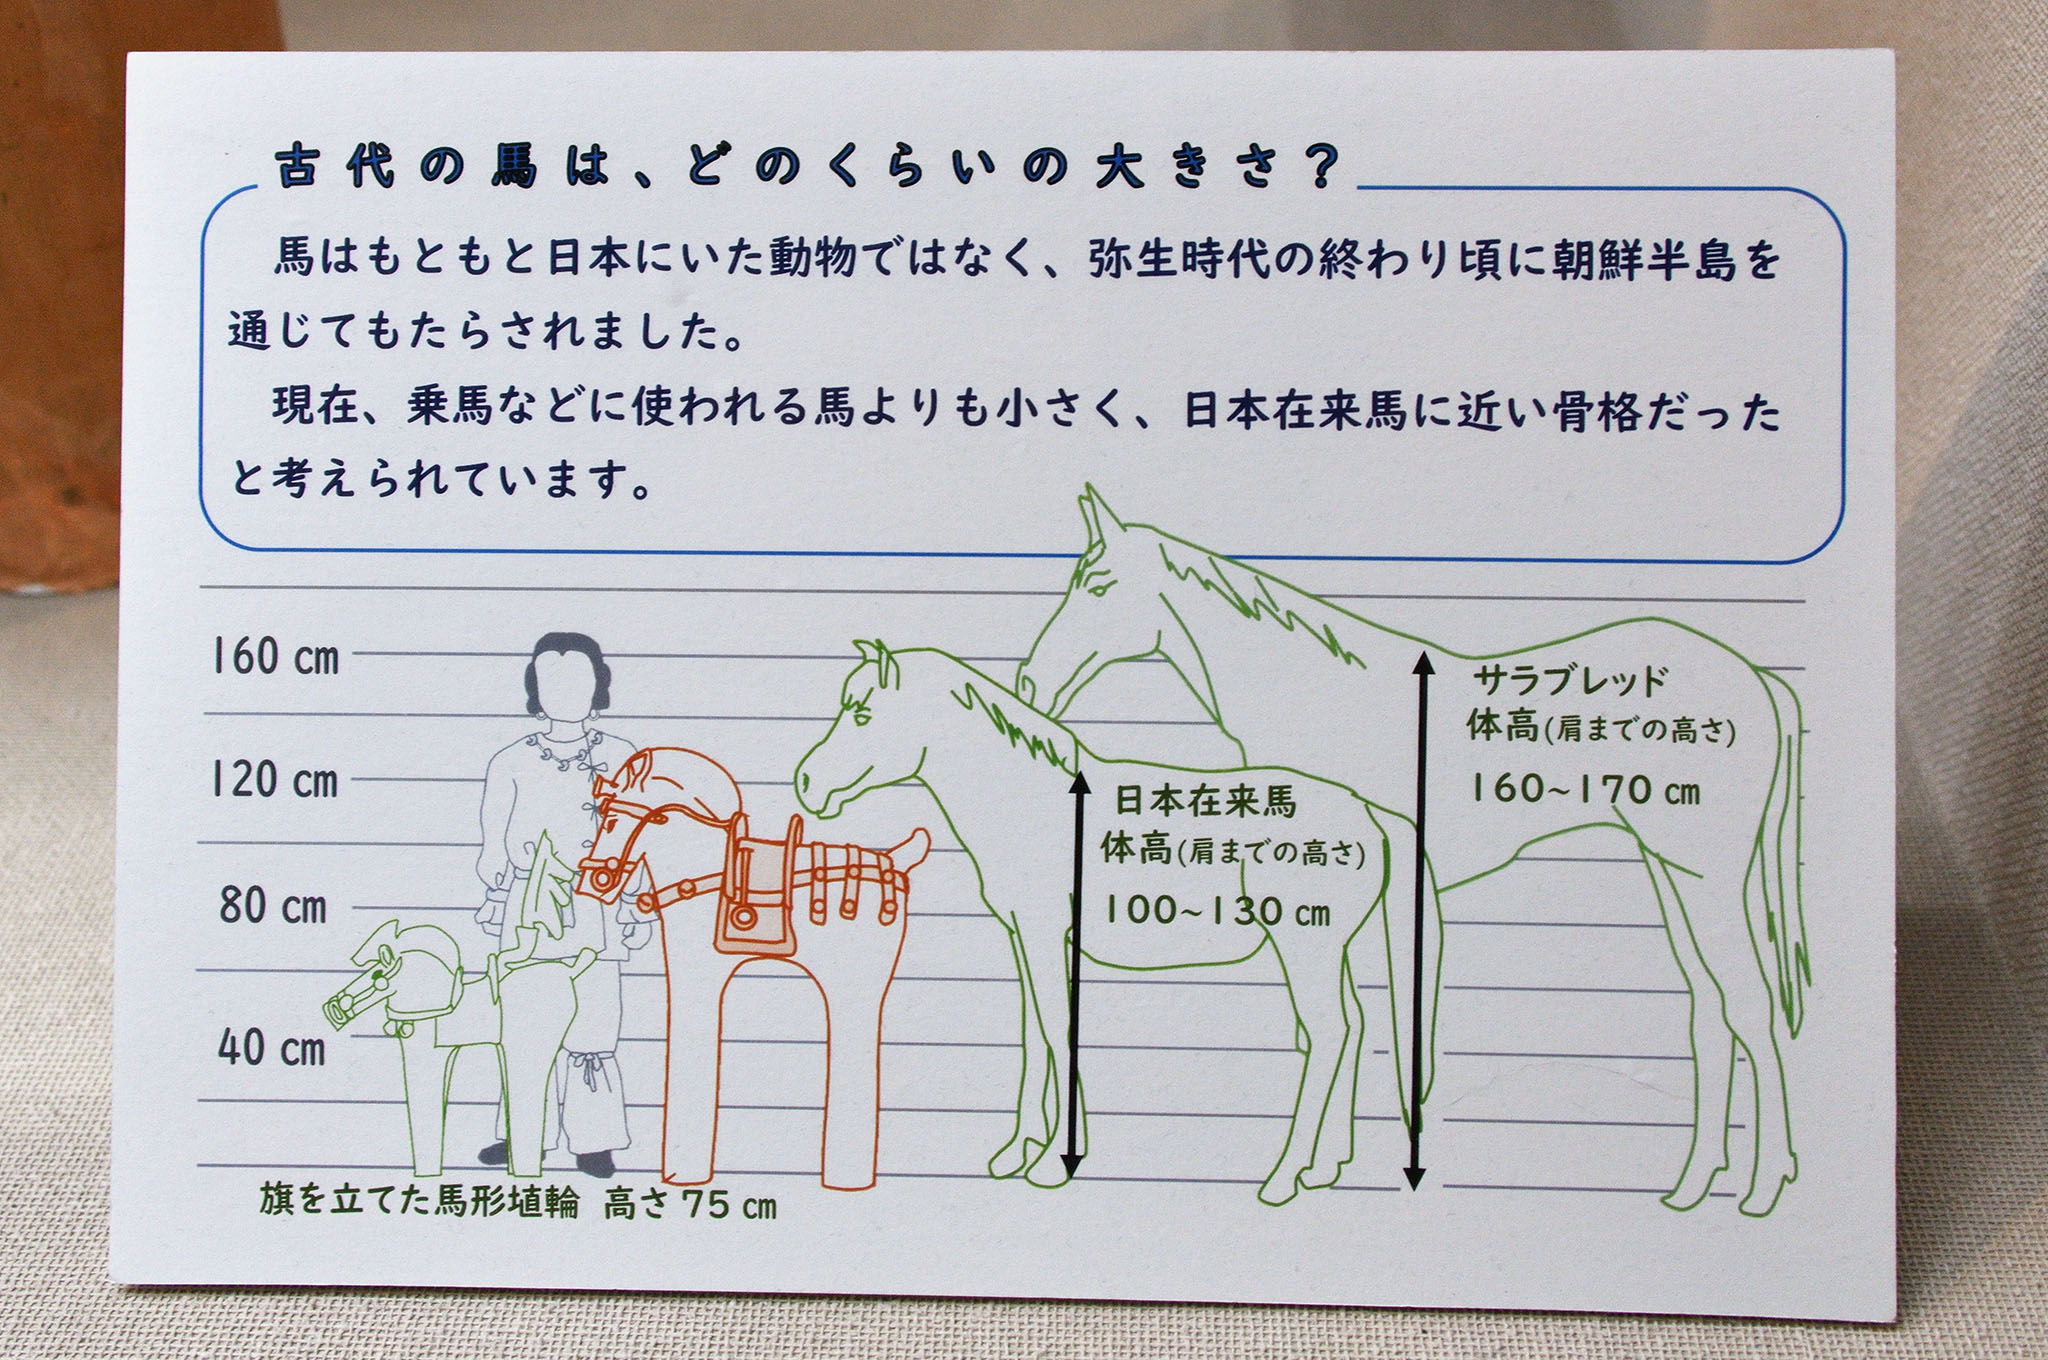 古代の馬は、どのくらいの大きさ？
馬はもともと日本にいた動物ではなく、弥生時代の終わり頃に朝鮮半島を
通じてもたらされました。
現在、乗馬などに使われる馬よりも小さく、日本在来馬に近い骨格だった
と考えられています。
160 cm
120 cm
80 cm
40 cm
サラブレッド
体高(肩までの高さ)
160~170 cm
日本在来馬
体高(肩までの高さ)
100~130 cm
旗を立てた馬形埴輪 高さ75 cm